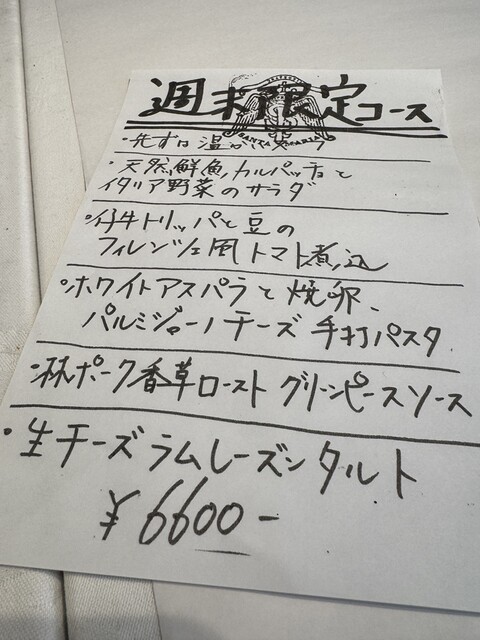 週末限定コース
SANTA MARIA
・先ずは温かいスープ
・天然鮮魚カルパッチョと
イタリア野菜のサラダ
・仔牛トリッパと豆の
フィレンツェ風トマト煮込
・ホワイトアスパラと焼卵、
パルミジャーノチーズ手打パスタ
・林ポーク香草ロースト グリーンピースソース
・生チーズラムレーズンタルト
¥6600-